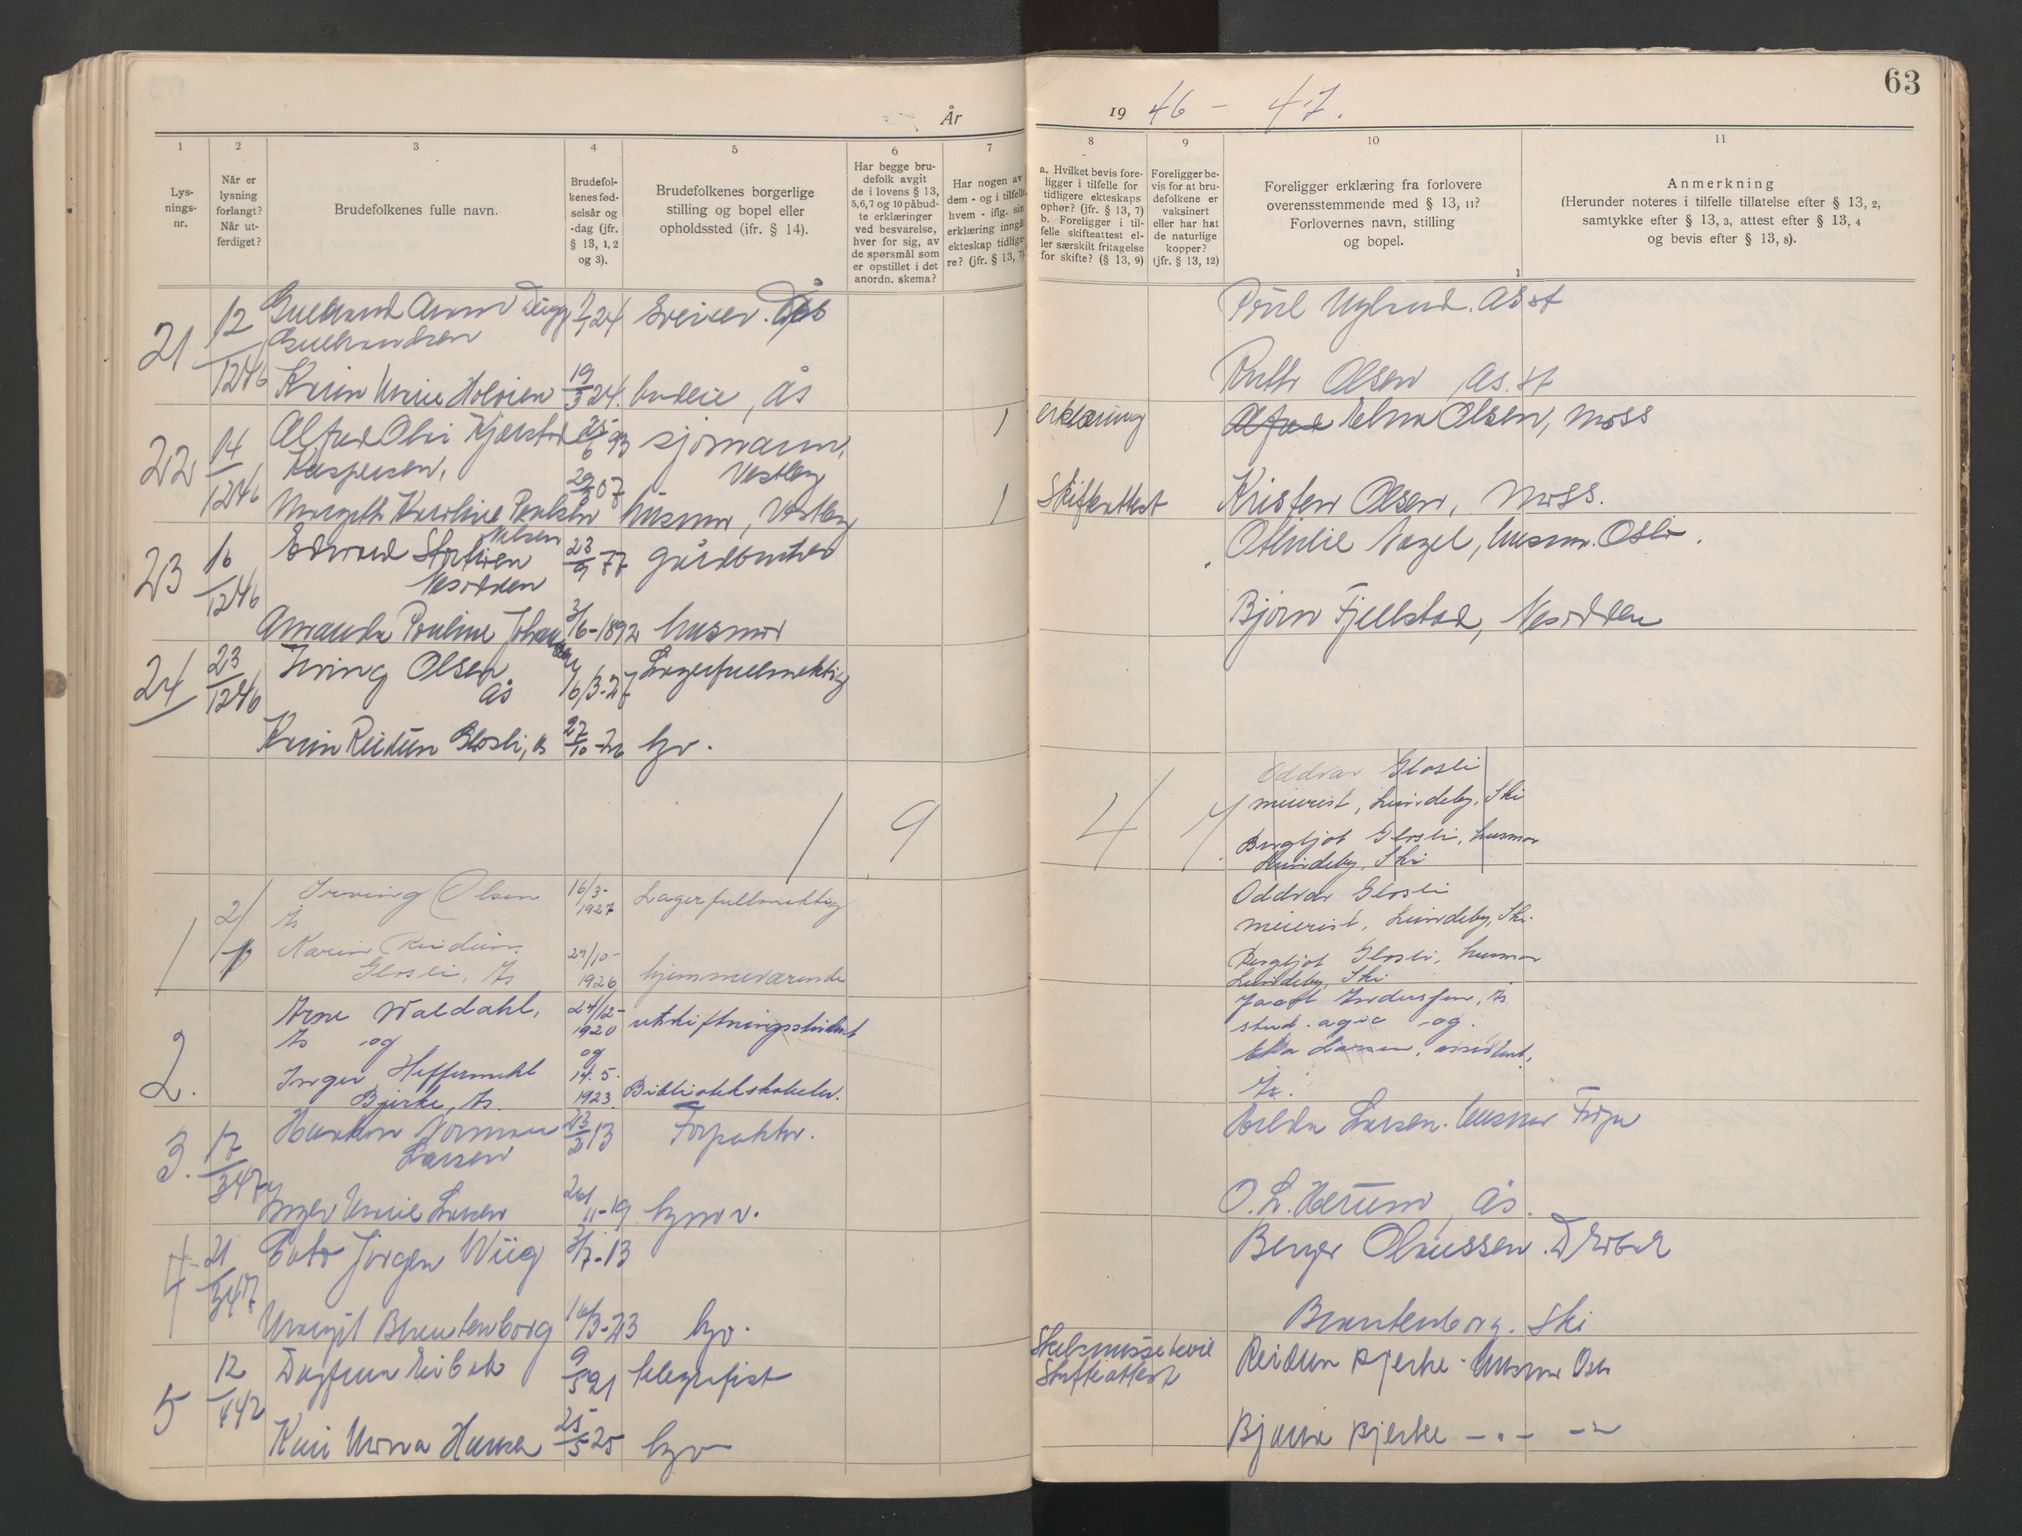 År
1946 - 47.
63
1
2
3
4
5
6
7
8
9
10
11
Lys-
nings-
nr.
Når er
lysning
forlangt?
Når ut-
ferdiget?
Brudefolkenes fulle navn.
Brudefol-
kenes fød-
selsår og
-dag (jfr.
§ 13, 1, 2
og 3).
Brudefolkenes borgerlige
stilling og bopel eller
opholdssted (ifr. § 14).
Har begge bru-
defolk avgit
de i lovens § 13,
5,6,7 og 10 påbud-
te erklæringer
ved besvarelse,
hver for sig, av
de spørsmål som
er opstillet i det
anordn. skema?
Har nogen av
dem - og i tilfelle
hvem - iflg. sin
erklæring inngå
ekteskap tidlige-
re? (jfr. § 13, 7)
a. Hvilket bevis fore-
ligger i tilfelle for
tidligere ekteskaps
ophør? (jfr. § 13, 7)
b. Foreligger i til-
felle skifteattest el-
ler særskilt fritagelse
for skifte? (§ 13, 9)
Foreligger be-
vis for at bru-
defolkene er
vaksinert
eller har hat
de naturlige
kopper?
(jfr. § 13, 12)
Foreligger erklæring fra forlovere
overensstemmende med § 13, 11?
Forlovernes navn, stilling
og bopel.
Anmerkning
(Herunder noteres i tilfelle tillatelse efter § 13, 2,
samtykke efter § 13, 3, attest efter § 13, 4
og bevis efter § 13, 8).
21 12/12 46 Gulbrand
Gulbrandsen
1/1 24 Sveiser.
Ås st
Karin Marie Holoien 19/3 24. budeie, Ås
Ruth Olsen Ås. st
22 14/12 46 Alfred Olai Kjærstad 25/6 93 sjømann,
Kaspersen, Vestby
1 erklæring Elna Olsen, Moss
Margith Karoline Paulsen 29/ 07 husmor, Vestby
1 Skifteattest Kristen Olsen, Moss.
23 16/12 46 Edvard Storlien Nilsen 23/9 - 77 gårdbruker
Nesodden
Othilie Nagel, husmor. Oslo.
Amanda Pauline Johansen 3/6 - 1892 husmor
Bjørn Fjellstad, Nesodden
24 23/12 46 Irving Olsen 16/3 - 27 Lagerfullmektig
Ås
Karin Reidun Glosli, Ås 27/10 - 26 hjv.
1 9 4 7
Oddvar Glosli
meierist, Lundeby, Ski
Bergljot Glosli, husmor
Lundeby, Ski
1 2/1 Irving Olsen 16/3 - 1927 Lagerfullmektig
Ås
Oddvar Glosli
meierist, Lundeby, Ski.
Karin Reidun 27/10 - 1926 hjemmeværende
Glosli, Ås
Bergljot Glosli, husmor
Lundeby, Ski
2. Arne Waldahl, 24/12 - 1920 utskiftningsstudent
Ås og
og
Andersen, Ås
stud. agric og
Larsen, assistent,
Ås.
Inger Heffermehl 14. 5. 1923. Bibliotekskabelev.
Bjerke, Ås.
3. 17/3 47 Haakon Norman 23/2 13 Forpakter.
Larsen
Hilda Larsen. husmor
Inger Marie Larsen 26/11 - 19 hjmv.
O. L. Harum, Ås.
4 21/3 47 Cato Jørgen Wiig 3/7 - 13
Birger Olaussen. Drøbak
Margit Brantenborg 16/3 - 23 hjv.
Brantenborg. Ski
5 12/4 47 Dagfinn 9/5 21 telegrafist
Skilsmissebevis
Skifteattest
Reidun Bjerke. husmor Oslo
Kari Mona Hansen 25/5 25 hjv
Bjarne Bjerke - " - - " -